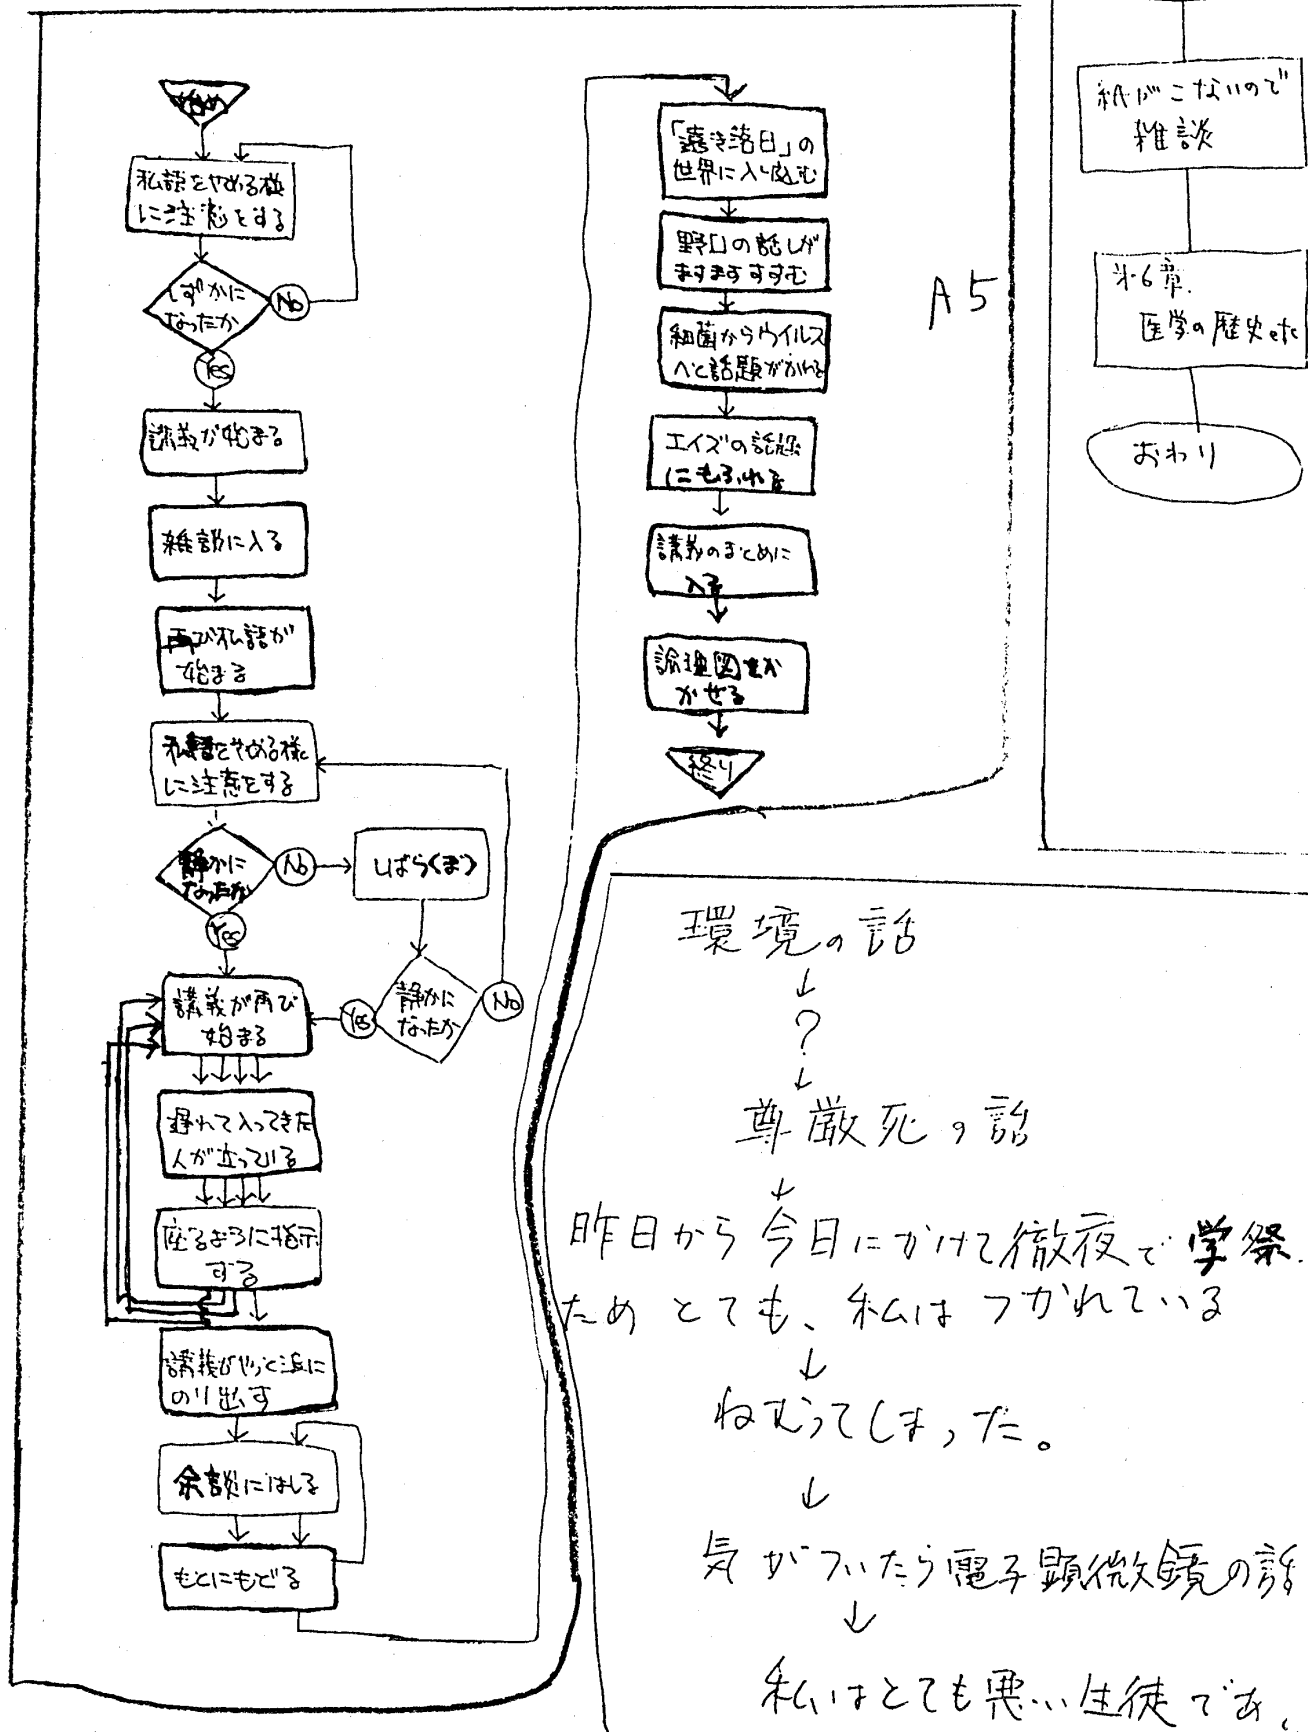 始め
私語をやめる様
に注意をする
しずかに
なったか
No
Yes
講義が始まる
雑談に入る
再び私語が
始まる
私語をやめる様
に注意をする
静かに
なったか
No
しばらくまつ
Yes
静かに
なったか
No
Yes
講義が再び
始まる
遅れて入ってきた
人が立っている
座るように指示
する
講義がやっと波に
のり出す
余談にはしる
もとにもどる
「遠き落日」の
世界に入り込む
野口の話しが
ますますすすむ
細菌からウイルス
へと話題がかわる
エイズの話題
にもふれる
講義のまとめに
入る
論理図をか
かせる
終り
A5
紙がこないので
雑談
第6章.
医学の歴史etc
おわり
環境の話
↓
?
↓
尊厳死の話
↓
昨日から今日にかけて徹夜で学祭.
ためとても、私はつかれている
↓
ねむってしまった。
↓
気がついたら電子顕微鏡の話
↓
私はとても悪い生徒であ